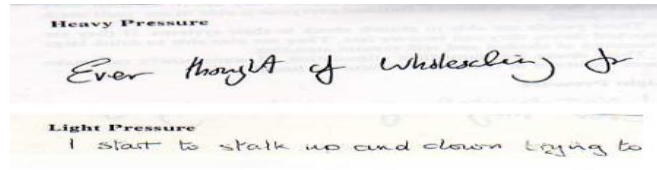 Heavy Pressure
Ever thought of wholesaling or
Light Pressure
I start to stalk up and down trying to